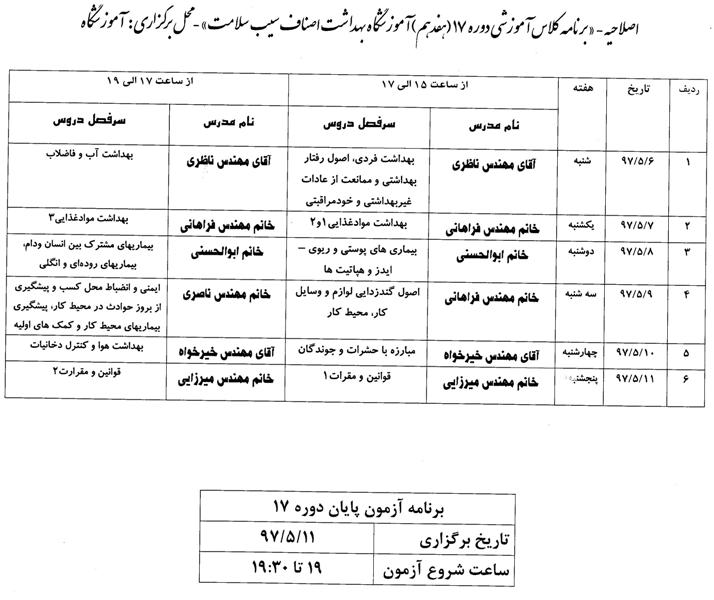 اصلاحیه - «برنامه کلاس آموزشی دوره ۱۷ (هفدهم) آموزشگاه بهداشت اصناف سیب سلامت» - محل برگزاری: آموزشگاه
ردیف تاریخ هفته از ساعت ۱۵ الی ۱۷ از ساعت ۱۷ الی ۱۹
نام مدرس سرفصل دروس نام مدرس سرفصل دروس
۱ ۹۷/۵/۶ شنبه آقای مهندس ناظری بهداشت فردی، اصول رفتار آقای مهندس ناظری بهداشت آب و فاضلاب
بهداشتی و ممانعت از عادات
غیربهداشتی و خودمراقبتی
۲ ۹۷/۵/۷ یکشنبه خانم مهندس فراهانی بهداشت موادغذایی۱و۲ خانم مهندس فراهانی بهداشت موادغذایی۳
۳ ۹۷/۵/۸ دوشنبه خانم ابوالحسنی بیماری های پوستی و ریوی – خانم ابوالحسنی بیماریهای مشترک بین انسان ودام،
ایدز و هپاتیت ها بیماریهای روده‌ای و انگلی
۴ ۹۷/۵/۹ سه شنبه خانم مهندس فراهانی اصول گندزدایی لوازم و وسایل خانم مهندس ناصری ایمنی و انضباط محل کسب و پیشگیری
کار، محیط کار از بروز حوادث در محیط کار، پیشگیری
بیماریهای محیط کار و کمک های اولیه
۵ ۹۷/۵/۱۰ چهارشنبه آقای مهندس خیرخواه مبارزه با حشرات و جوندگان آقای مهندس خیرخواه بهداشت هوا و کنترل دخانیات
۶ ۹۷/۵/۱۱ پنجشنبه خانم مهندس میرزایی قوانین و مقرات۱ خانم مهندس میرزایی قوانین و مقرارت۲
برنامه آزمون پایان دوره ۱۷
تاریخ برگزاری ۹۷/۵/۱۱
ساعت شروع آزمون ۱۹ تا ۱۹:۳۰